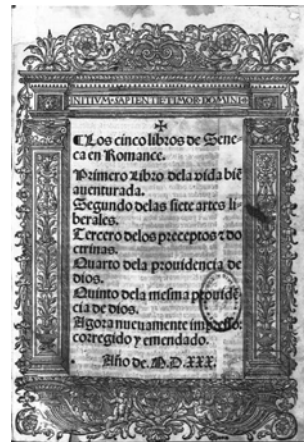 INITIVM SAPIENTE TIMOR DOMINI
¶Los cinco libros de Sene-
ca en Romance.
Primero Libro dela vida biē
auenturada.
Segundo delas siete artes li-
berales.
Tercero delos preceptos ⁊ do
ctrinas.
Quarto dela prouidencia de
dios.
Quinto dela mesma prouidē-
cia de dios.
Agora nueuamente impresso:
corregido y emendado.
Año de. M.D.XXX.